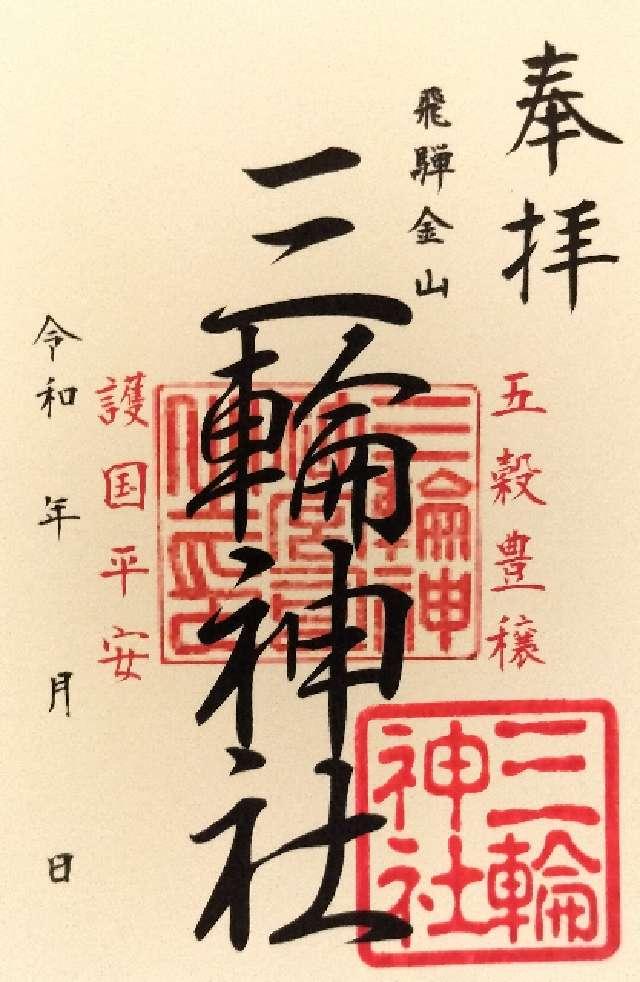 奉拝
飛騨金山
五穀豊穣
三輪神社
護国平安
令和 年 月 日
三輪
神社